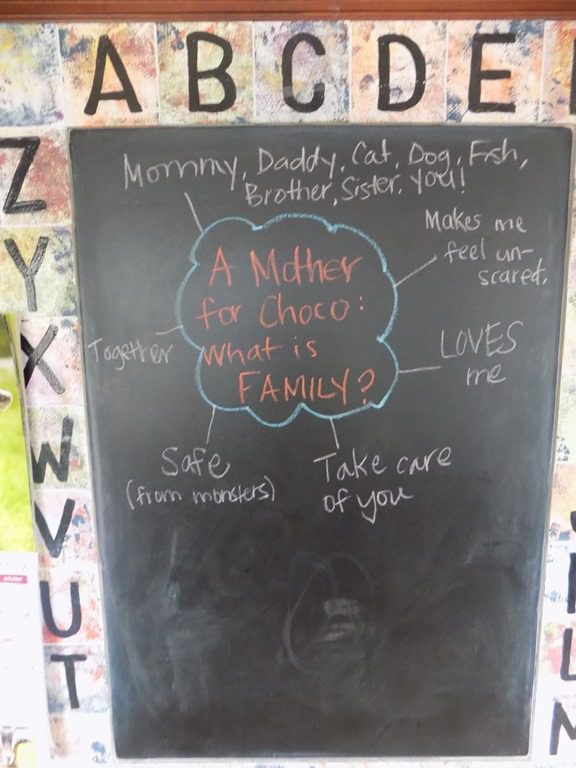 A B C D E
Z
Y
X
W
V
U
T
Mommy, Daddy, Cat, Dog, Fish,
Brother, Sister, you!
A Mother
for Choco:
what is
FAMILY?
Makes me
feel un-
scared.
LOVES
me
Take care
of you
Safe
(from monsters)
Together
L
M